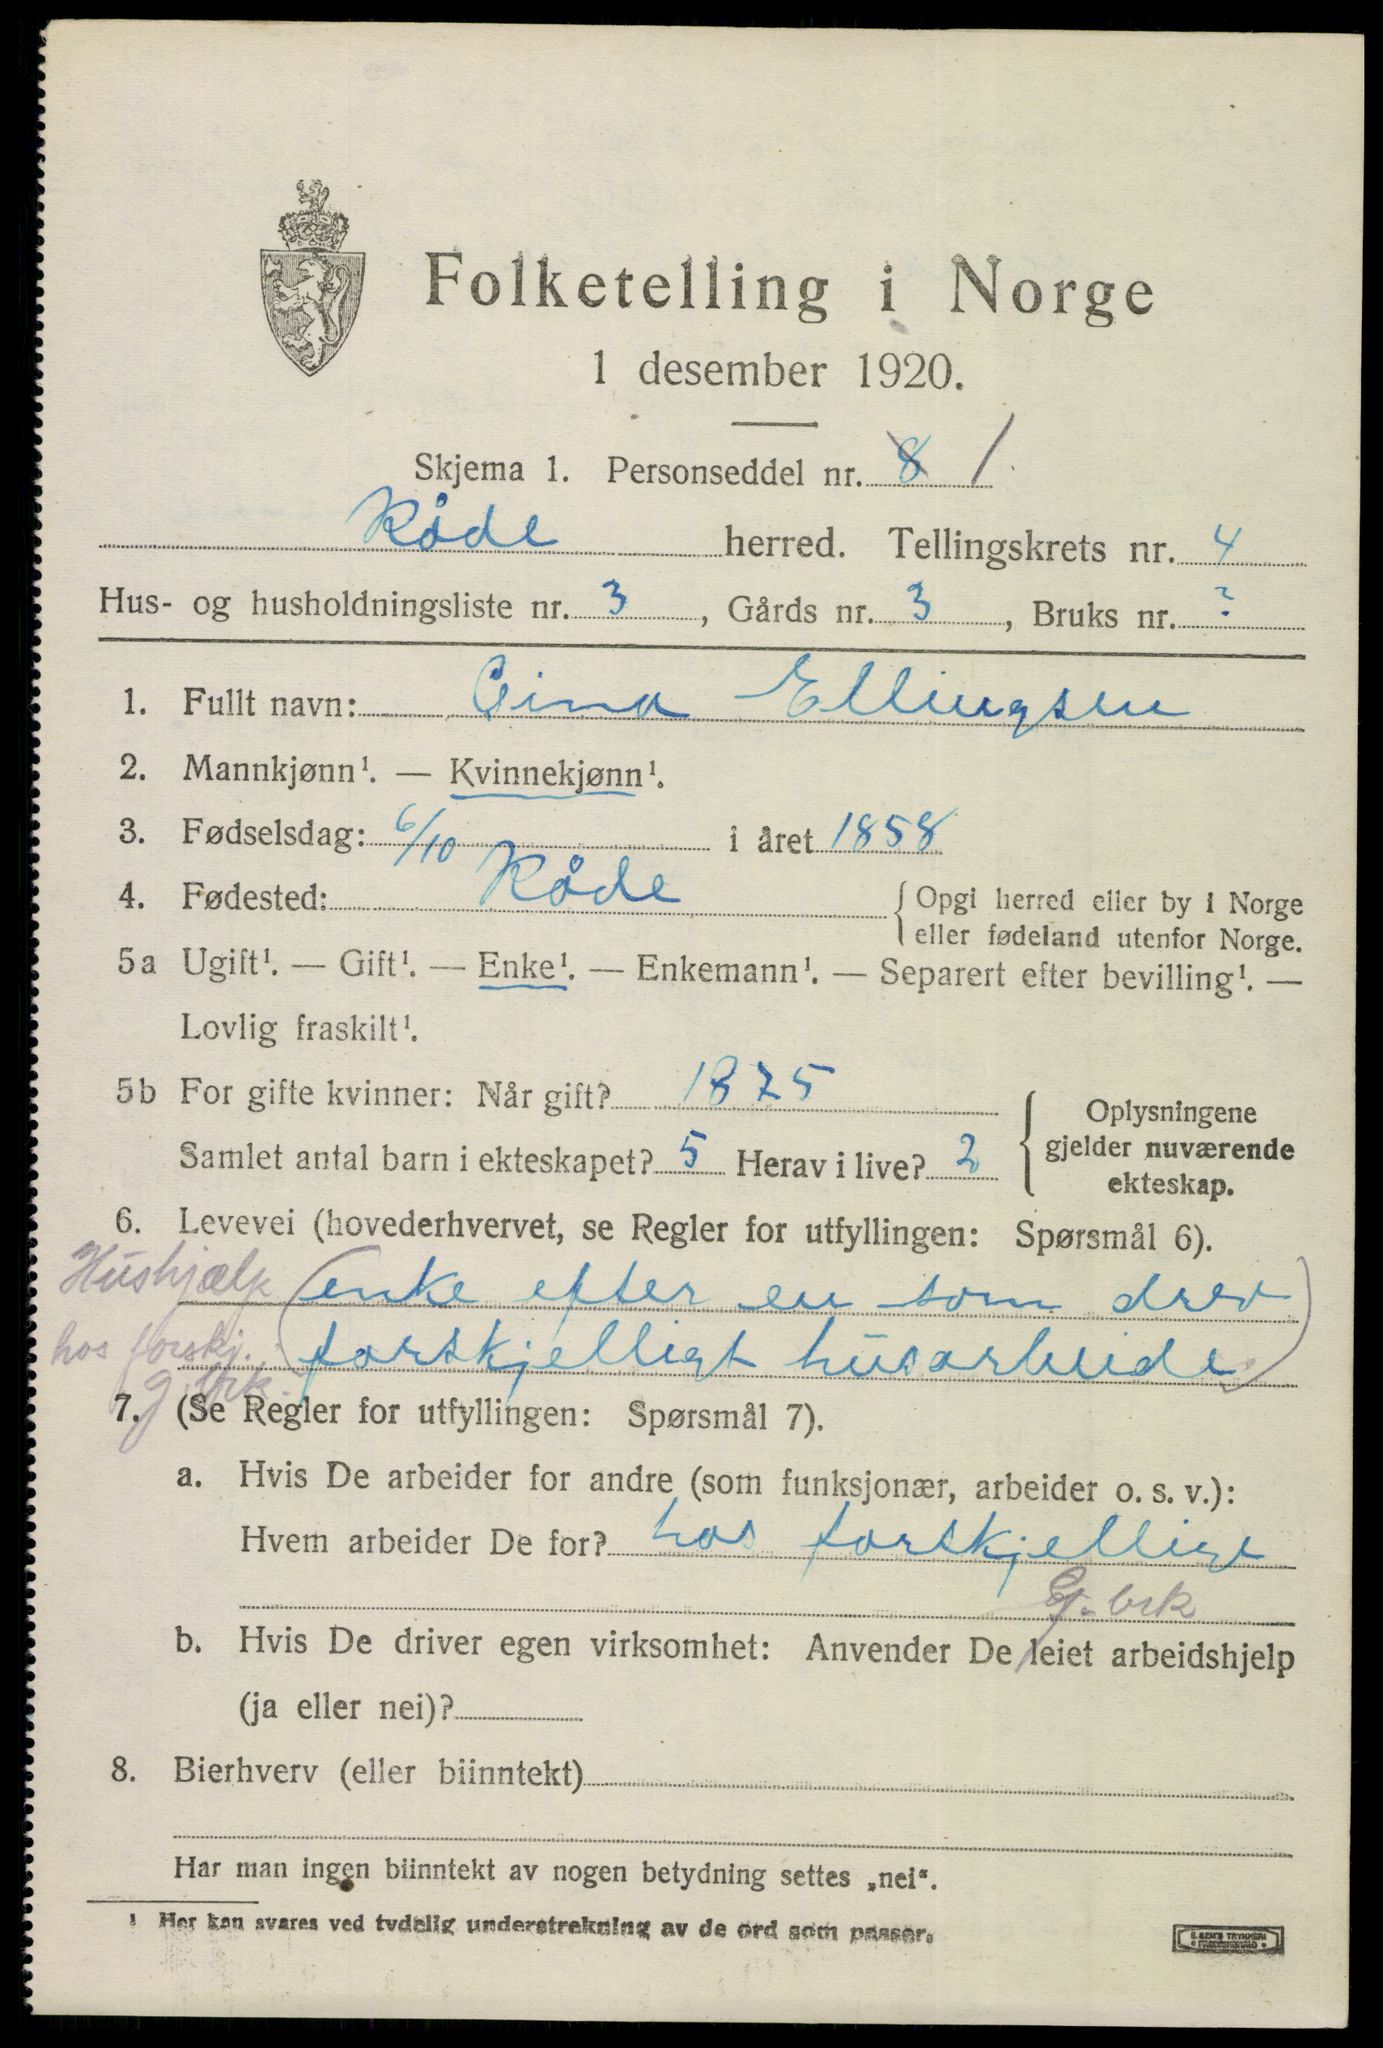 Folketelling i Norge
1 desember 1920.
Skjema 1. Personseddel nr. 8 1
Råde herred. Tellingskrets nr. 4
Hus- og husholdningsliste nr. 3, Gårds nr. 3, Bruks nr. ?
1. Fullt navn: Gina Ellingsen
2. Mannkjønn¹. — Kvinnekjønn¹.
3. Fødselsdag: 6/10 i året 1858
4. Fødested: Råde { Opgi herred eller by i Norge
eller fødeland utenfor Norge.
5a Ugift¹. — Gift¹. — Enke¹. — Enkemann¹. — Separert efter bevilling¹. —
Lovlig fraskilt¹.
5b For gifte kvinner: Når gift? 1875
Samlet antal barn i ekteskapet? 5 Herav i live? 2
{ Oplysningene
gjelder nuværende
ekteskap.
6. Levevei (hovederhvervet, se Regler for utfyllingen: Spørsmål 6).
Hushjælp (enke efter en som drev
hos forskj. forskjelligt husarbeide)
g.brk.
7. (Se Regler for utfyllingen: Spørsmål 7).
a. Hvis De arbeider for andre (som funksjonær, arbeider o. s. v.):
Hvem arbeider De for? hos forskjellige
G. brk
b. Hvis De driver egen virksomhet: Anvender De leiet arbeidshjelp
(ja eller nei)?
8. Bierhverv (eller biinntekt)
Har man ingen biinntekt av nogen betydning settes „nei“.
¹ Her kan svares ved tydelig understrekning av de ord som passer.